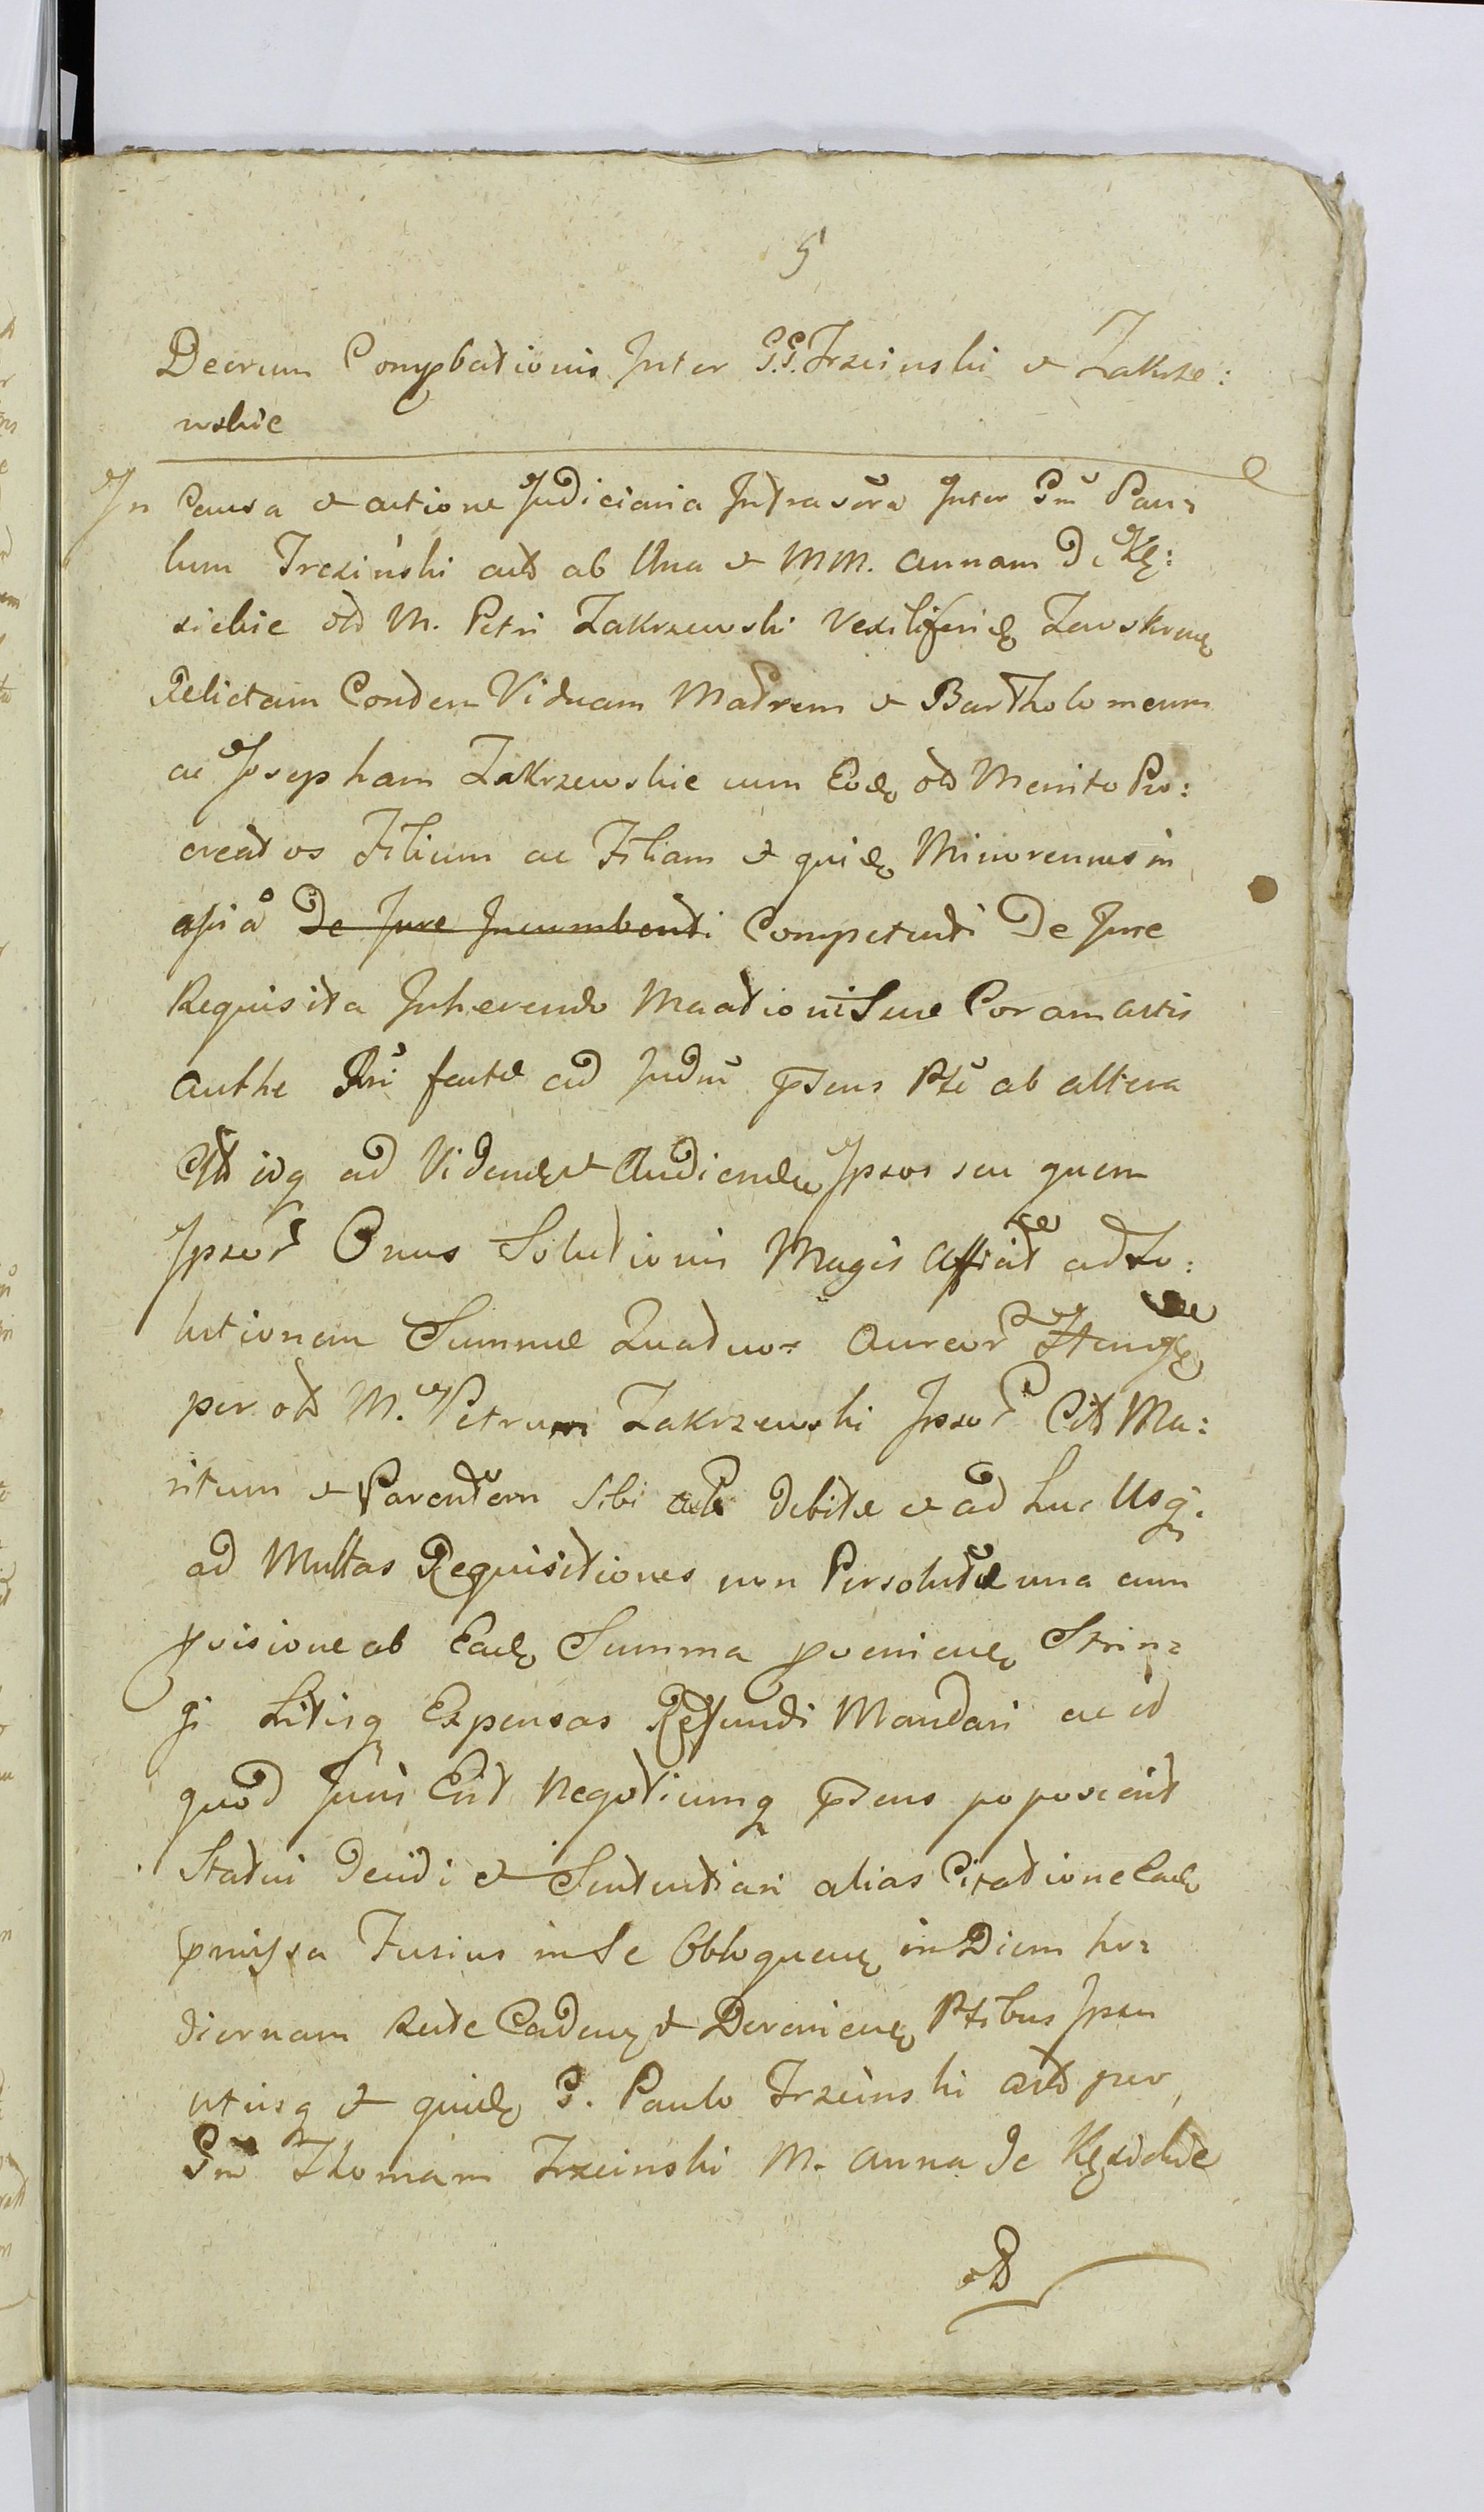 5
Decrum Compbationis Inter G.G. Trzcinski et Zakrze:
wskie
In Causa et actione Judiciaria Infrascra Inter Gm Pau=
lum Trzcinski act ab Una et MM. Annam De Kę:
sickie M. Petri Zakrzewski Vexiliferi
Relictam Condem Viduam Matrem et Bartholomeum
ac Josepham Zakrzewskie cum Eod M Pro:
creatos Filium ac Filiam et quid Minorennes in
De Jure Incumbenti Competenti De Jure
Requisita Inherendo Sue Coram actis
authe ad Judm psens Pte ab altera
ad Vidend et Audiend Ipsos seu quem
Ipsor Onus Solutionis Magis Afficit ad So:
lutionem Summe Quatuor Aureor
per M. Petrum Zakrzewski Ipsor Ctt Ma:
ritum et Parentem Sibi debite et ad huc Usq.
ad Multas Requisitiones non Persolute una cum
pvisione ab Ead Summa pvenien Strin=
gi Litisq Expensas Refundi Mandari ac id
quod Juris Erit Negotiumq psens poposcerit
Statui Decidi et Sententiari alias Citatione Ead
pmissa Fusius in Se Obloquen in Diem ho=
diernam Recte Caden et Devenien Ptibus Ipsis
utrisq et quid G. Paulo Trzcinski act per
Gm Thomam Trzcinski M. Anna de Kęsickie